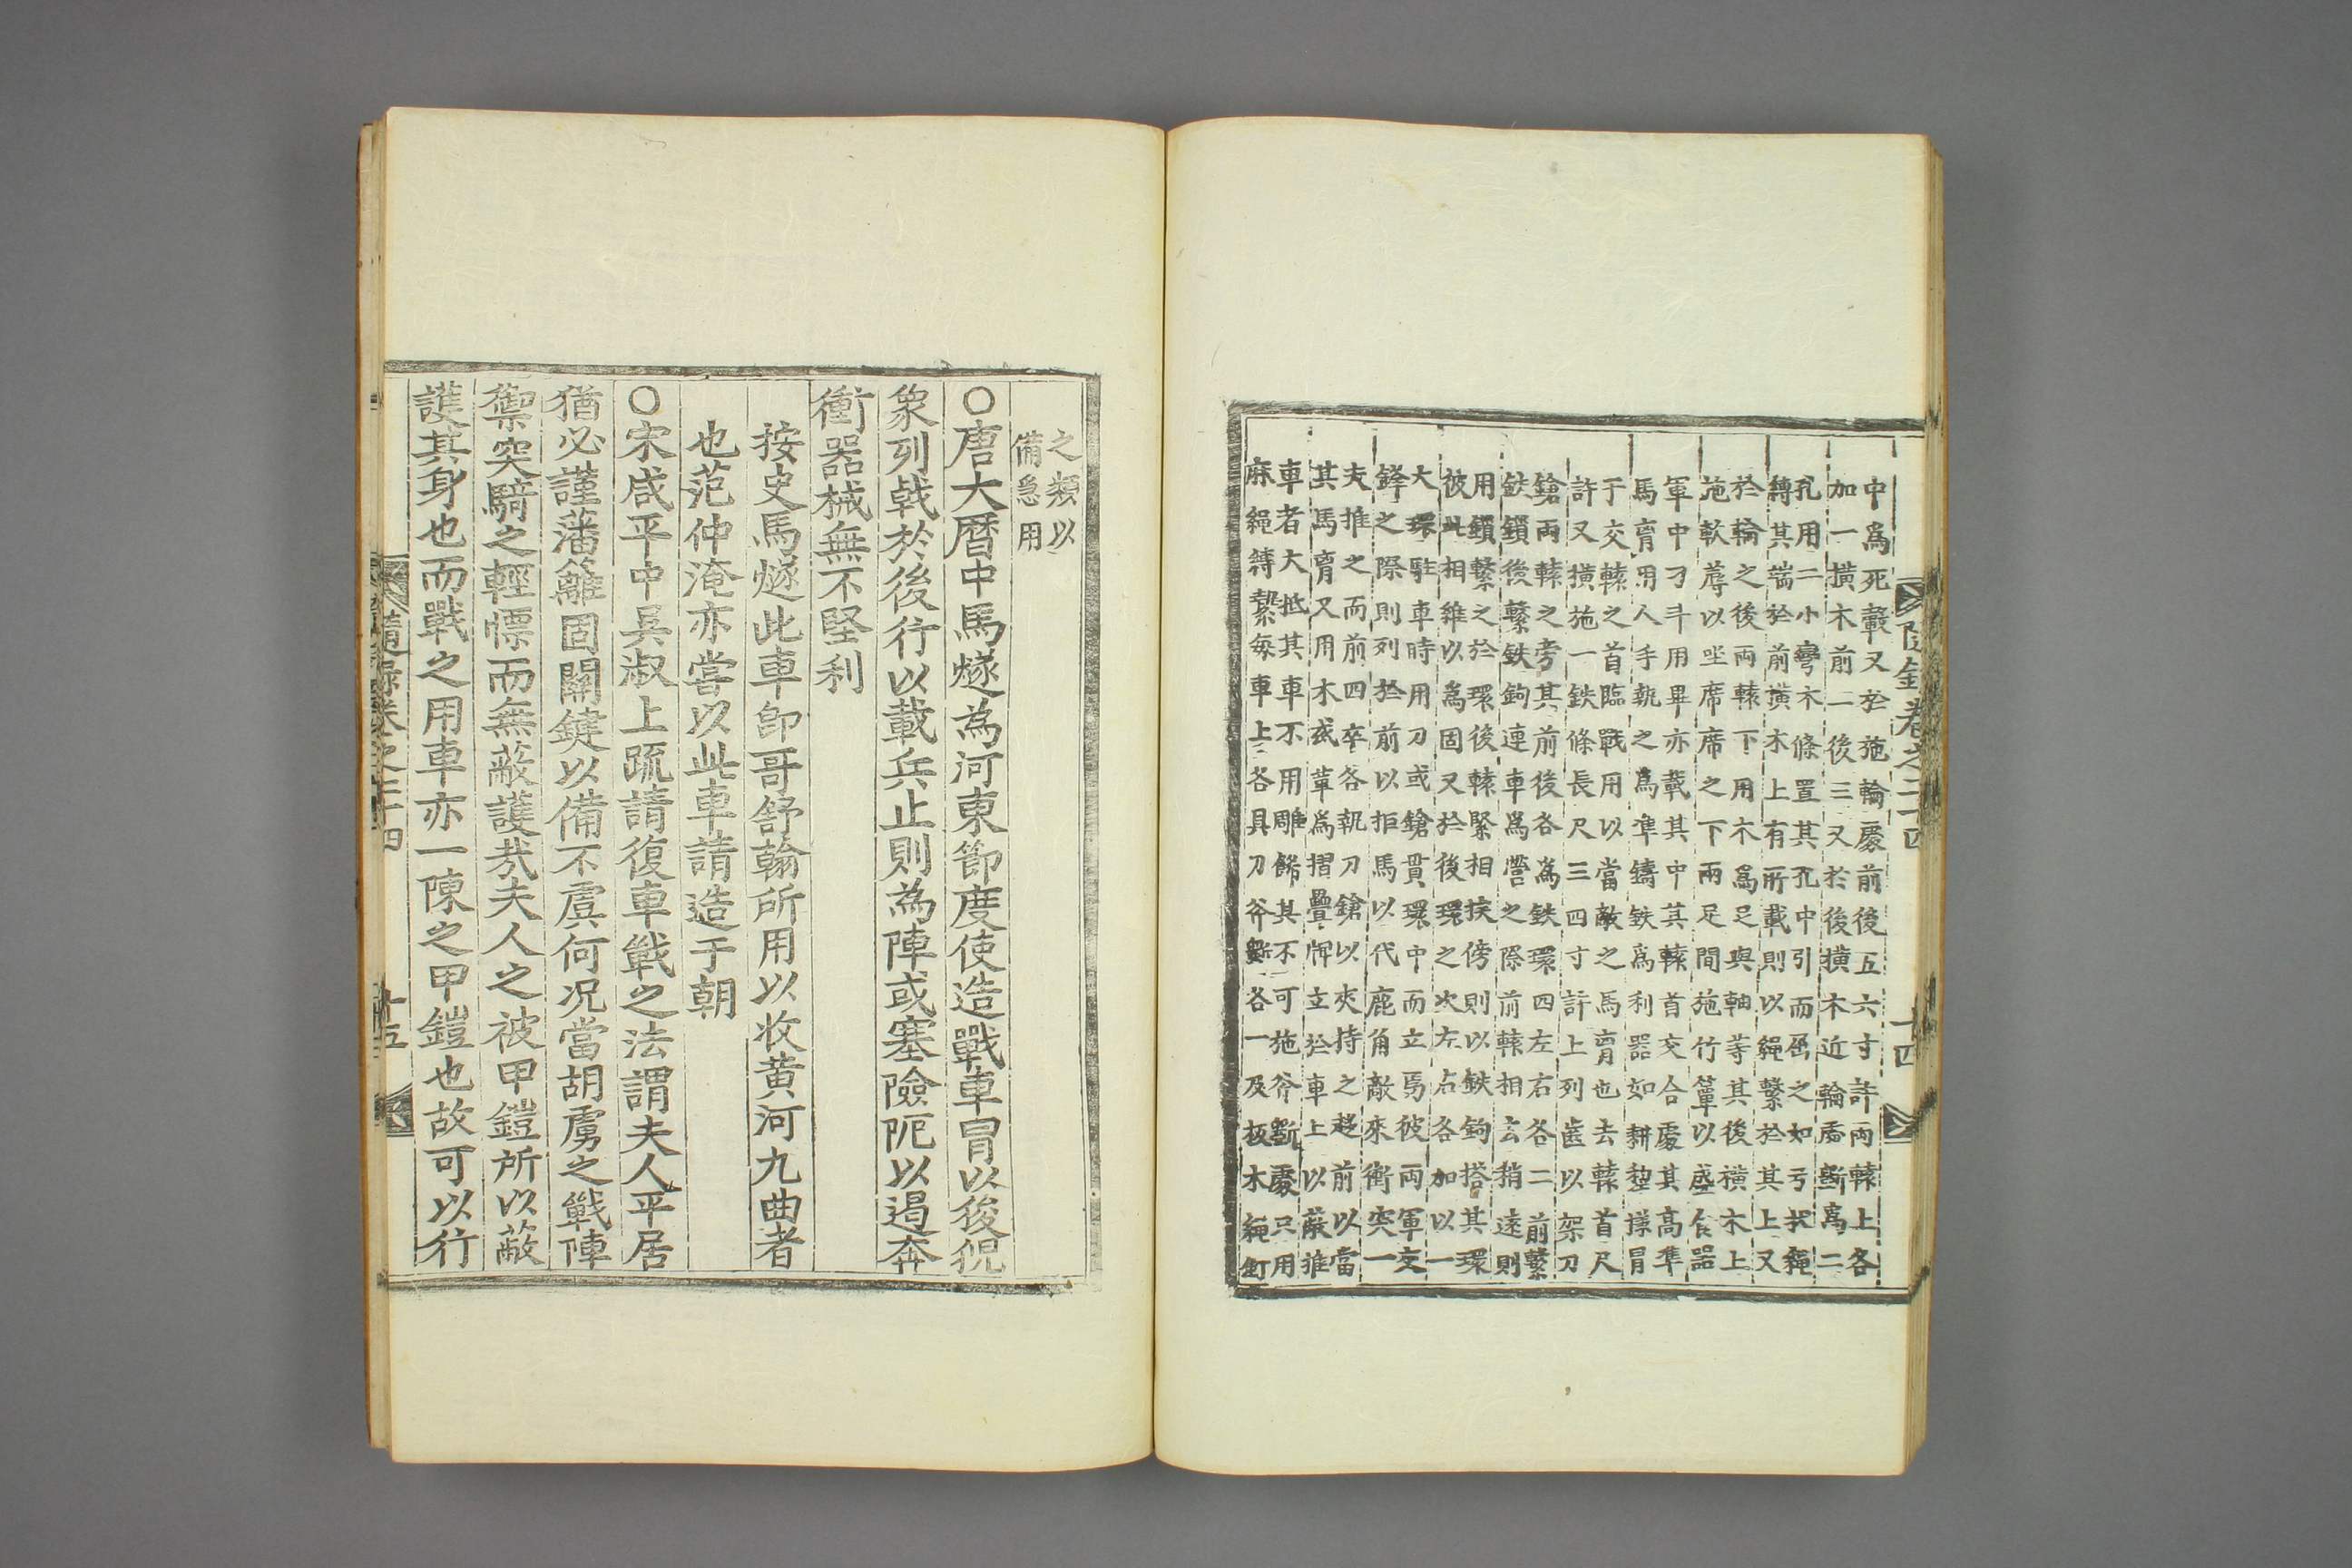 隨錄卷之二十四
十四
中爲死轂又於施輪處前後五六寸許両轅上各
加一橫木前一後三又於後橫木近輪處斲爲二
孔用二小彎木條置其孔中引而屈之如弓狀繩
縛其端於前橫木上有所載則以繩繫於其上又
於輪之後両轅下用木爲足與軸等其後橫木上
施軟蓐以坐席席之下兩足間施竹簞以盛食器
軍中刁斗用畢亦載其中其轅首交合處其高準
馬胷用人手執之爲準鑄鉄爲利器如耕犂㨾冒
于交轅之首臨戰用以當敵之馬胷也去轅首尺
許又橫施一鉄條長尺三四寸許上列齒以架刀
鎗兩轅之旁其前後各爲鉄環四左右各二前繫
鉄鎖後繫鉄鉤連車爲營之際前轅相去稍遠則
用鎖繫之於環後轅緊相挨傍則以鉄鉤搭其環
彼此相維以爲固又於後環之次左右各加以一
大環駐車時用刀或鎗貫環中而立焉彼両軍交
鋒之際則列於前以拒馬以代鹿角敵來衝突一
夫推之而前四卒各執刀鎗以夾持之趍前以當
其馬胷又用木或葦爲摺疊牌立於車上以蔽推
車者大抵其車不用雕餙其不可施斧斲處只用
麻繩縛繫每車上各具刀斧斲各一及板木繩釘
之類以
備急用
○唐大曆中馬燧為河東節度使造戰車冒以後猊
象列戟於後行以載兵止則為陣或塞險阨以遏奔
衝器械無不堅利
按史馬燧此車卽哥舒翰所用以收黄河九曲者
也范仲淹亦嘗以此車請造于朝
○宋咸平中吳叔上疏請復車戰之法謂夫人平居
猶必謹藩籬固關鍵以備不虞何况當胡虜之戰陣
禦突騎之輕慓而無蔽護㢤夫人之被甲鎧所以蔽
護其身也而戰之用車亦一陳之甲鎧也故可以行
隨錄卷之二十四
十五